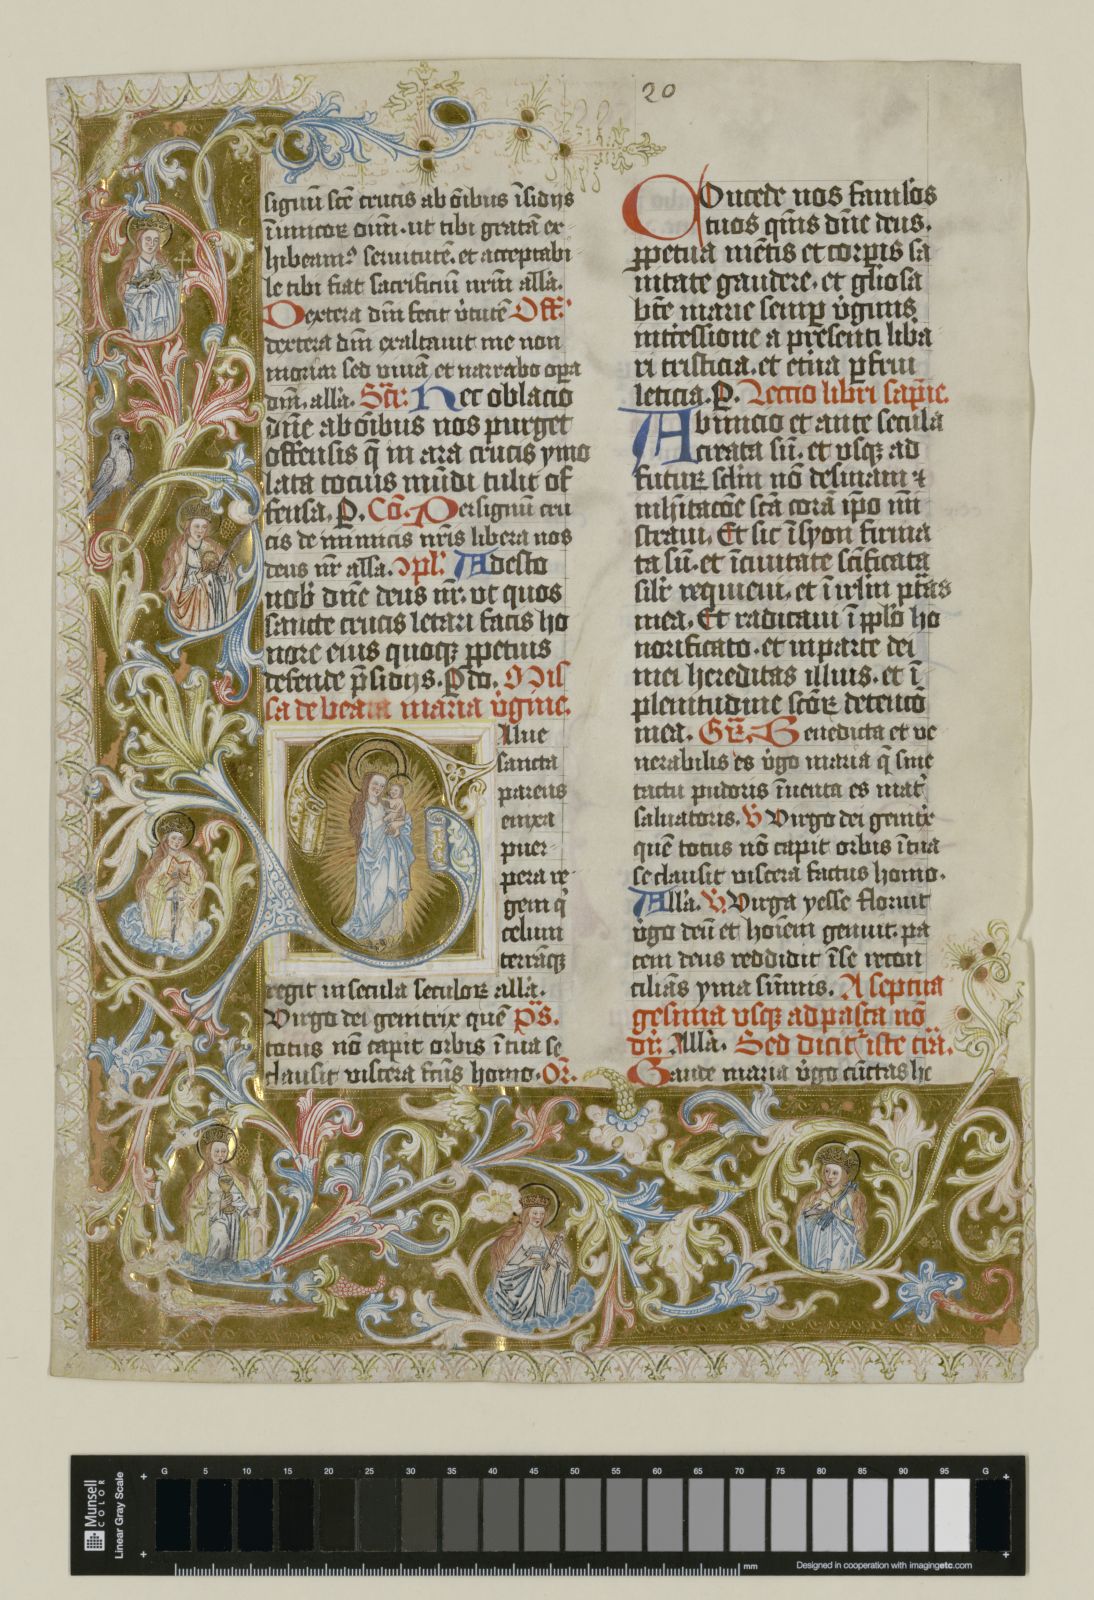 20
signū scē crucis ab oībus īsidijs
īimicor oīm · ut tibi gratā ex
hibeam9 seruitutē · et acceptabi
le tibi fiat sacrificiū nrm̄ allā.
Dextera dm̄ fecit v̄tutē Off:
dextera dm̄ exaltauit me non
moriar sed viuā et narrabo opa
dm̄. allā. Scr: Hec oblacio
dn̄e ab oībus nos purget
offensis q̄ in ara crucis ymo
lata tocius mūdi tulit of
fensa. P. Cō. Per signū cru
cis de inimicis nr̄is libera nos
deus nr̄ allā. Cpl: Adesto
nob dn̄e deus nr̄. vt quos
sancte crucis letari facis ho
nore eius quoq ppetuis
defende p̄sidijs. P do. Mis
sa de beata maria v̄gine.
Salue
sancta
parens
enixa
puer
pera re
gem q
celum
terrāq
regit in secula seculor allā.
Virgo dei genitrix quē Ps.
totus nō capit orbis ī tua se
clausit viscera fc̄us homo. Or.
Concede nos famlos
tuos qm̄s dn̄e deus.
ppetua mētis et corpis sa
nitate gaudere. et gliosa
bt̄e marie semp v̄ginis
intcessione a presenti liba
ri tristicia. et etna pfrui
leticia. P. Lectio libri sapie.
Ab inicio et ante secula
creata sū. et vsq ad
futur sclm nō desinam et
inhitacōe scā corā ipo mi
straui. Et sic ī syon firma
ta sū. et ī ciuitate scīficata
silr requieui. et ī irlm ptas
mea. Et radicaui ī pplo ho
norificato. et in parte dei
mei hereditas illius. et ī
plenitudine scōr detencō
mea. Gr. Benedicta et ve
nerabilis es v̄go maria q sine
tactu pudoris īuenta es mat
saluatoris. V Virgo dei genitr
quē totus nō capit orbis ī tua
se clausit viscera factus homo.
Allā. V. Virga yesse floruit
v̄go deū et hoīem genuit. pa
cem deus reddidit ī se recon
ciliās yma sūmis. A septua
gesima vsq ad pasca nō
dr: Allā. Sed dicit iste tra.
Gaude maria v̄go cūctas he
Munsell
COLOR
Linear Gray Scale
G 5 10 15 20 25 30 35 40 45 50 55 60 65 70 75 80 85 90 95 G
mm
Designed in cooperation with imagingetc.com